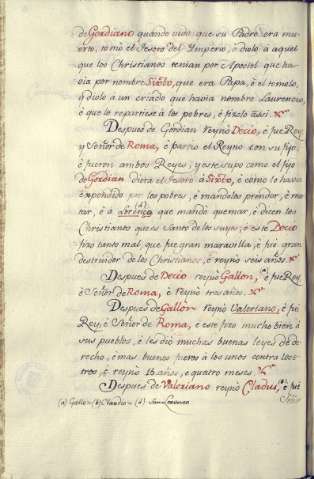 de Gordiano quando vido que su Padre era mu-
erto, tomó el tesoro del Imperio, é diolo á aquel
que los Christianos tenian por Apostol que ha-
via por nombre Sixto, que era Papa, é el tomolo,
é diolo á un criado que havia nombre Laurencio,
é que lo repartiese á los pobres, é fizolo assi.
Despues de Gordian reynó Decio, é fue Rey
y Señor de Roma, é partio el Reyno con su fijo,
é fueron ambos Reyes, y este supo como el fijo
de Gordian diera el tesoro á Sixto, é como lo havia
expendido por los pobres, é mandolos prender, é ma-
tar, é a Lorenço que mandó quemar, é dicen los
Christianos que es Santo de los suyos; é este Decio
fizo tanto mal, que fue gran maravilla, é fue gran
destruidor de los Christianos, é reynó seis años.
Despues de Decio reynó Gallon, é fue Rey
é Señor de Roma, é reynó tres años.
Despues de Gallon reynó Valeriano, é fue
Rey, é Señor de Roma, é este fizo mucho bien á
sus pueblos, é les dió muchas buenas leyes de de-
recho, é mas buenos fueros á los unos contra los o-
tros, é reynó 16 años, e quatro meses.
Despues de Valeriano reynó Cladus, é fue
Señor
(a) Gallo = (b) Claudio =